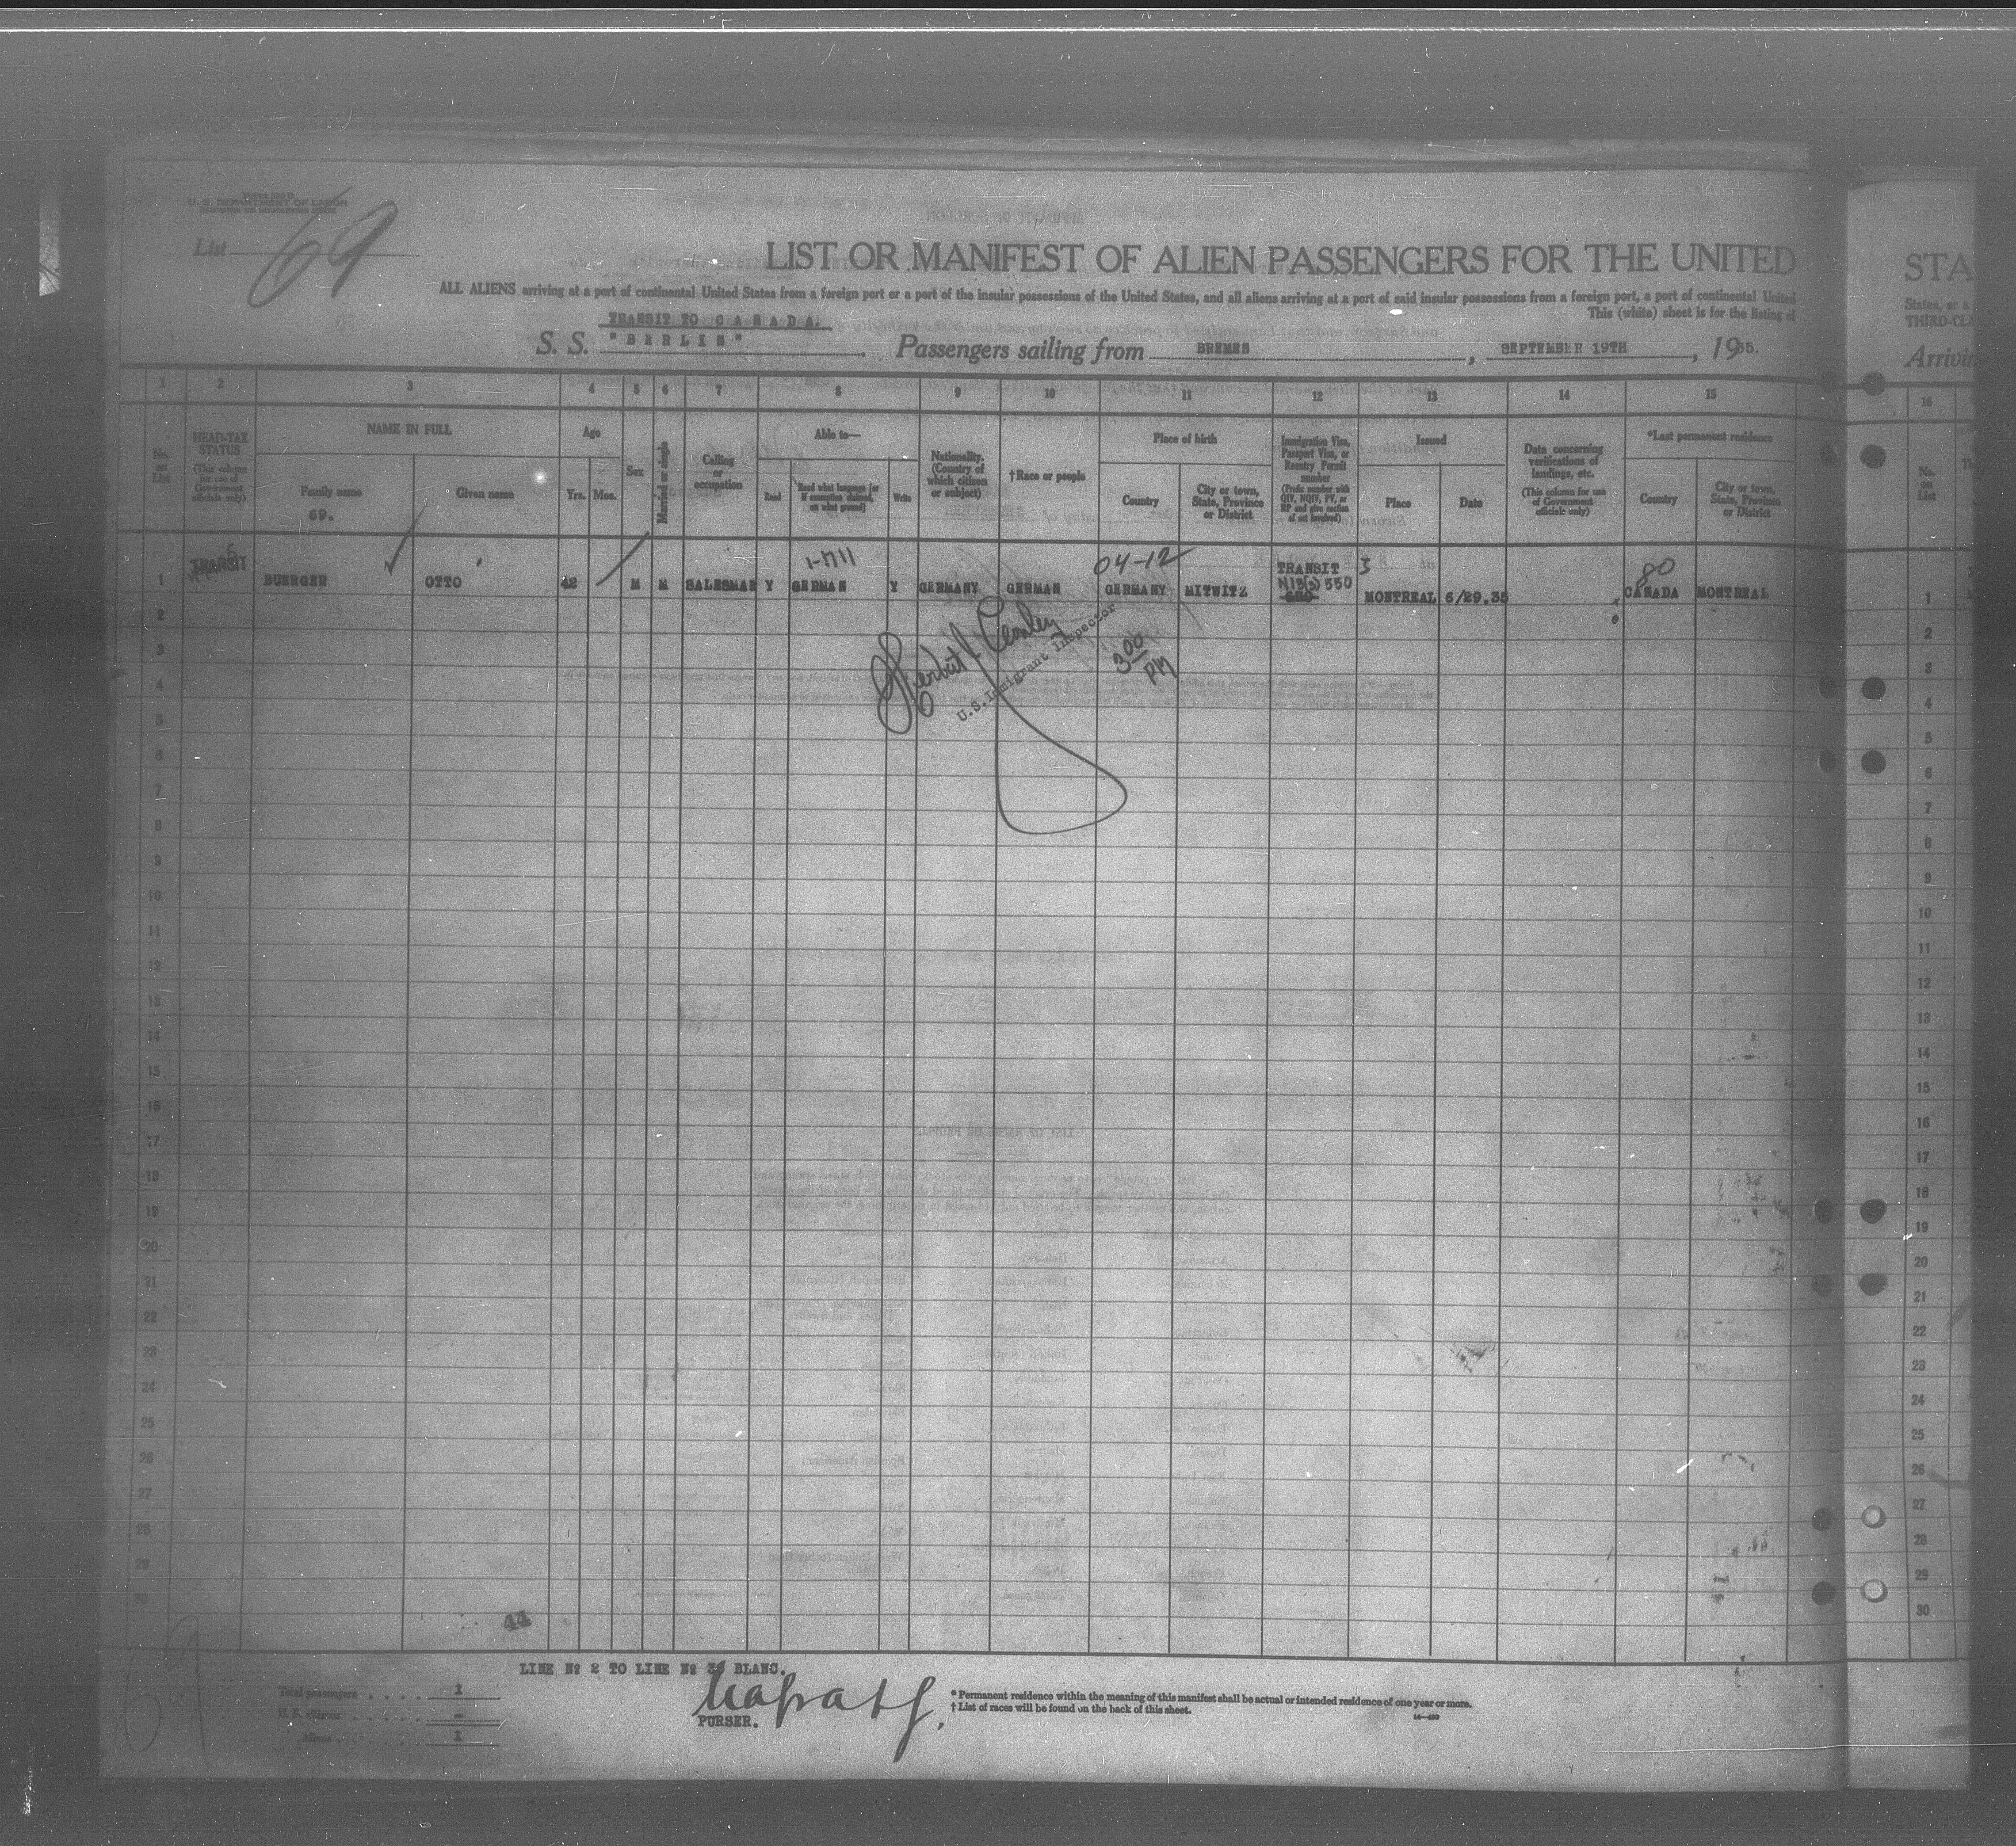 U. S. DEPARTMENT OF LABOR
List 69
LIST OR MANIFEST OF ALIEN PASSENGERS FOR THE UNITED
STA
ALL ALIENS arriving at a port of continental United States from a foreign port or a port of the insular possessions of the United States, and all aliens arriving at a port of said insular possessions from a foreign port, a port of continental United
States, or a
This (white) sheet is for the listing of
THIRD-CLA
TRANSIT TO CANADA.
S. S. "BERLIN". Passengers sailing from BREMEN, SEPTEMBER 19TH, 1935.
Arrivin
1 2 3 4 5 6 7 8 9 10 11 12 13 14 15
16
No. on List
HEAD-TAX STATUS
(This column for use of Government officials only)
NAME IN FULL
Family name
69.
Given name
Age
Yrs. Mos.
Sex
Married or single
Calling or occupation
Able to—
Read
Read what language [or if exemption claimed, on what ground]
Write
Nationality. (Country of which citizen or subject)
†Race or people
Place of birth
Country
City or town, State, Province or District
Immigration Visa, Passport Visa, or Reentry Permit number
(Prefix number with QIV, NQIV, PV, or RP and give section of act involved)
Issued
Place
Date
Data concerning verifications of landings, etc.
(This column for use of Government officials only)
*Last permanent residence
Country
City or town, State, Province or District
No. on List
1-1711 04-12 3 80
1 TRANSIT BUERGER OTTO 42 M M SALESMAN Y GERMAN Y GERMANY GERMAN GERMANY MITWITZ TRANSIT 550 MONTREAL 6/29.35 CANADA MONTREAL 1
U.S. Immigrant Inspector
3 00 PM
2 2
3 3
4 4
5 5
6 6
7 7
8 8
9 9
10 10
11 11
12 12
13 13
14 14
15 15
16 16
17 17
18 18
19 19
20 20
21 21
22 22
23 23
24 24
25 25
26 26
27 27
28 28
29 29
30 30
44
LINE No 2 TO LINE No 30 BLANC.
Total passengers . . . . 1
U. S. citizens . . . . -
Aliens . . . . . . 1
PURSER.
* Permanent residence within the meaning of this manifest shall be actual or intended residence of one year or more.
† List of races will be found on the back of this sheet.